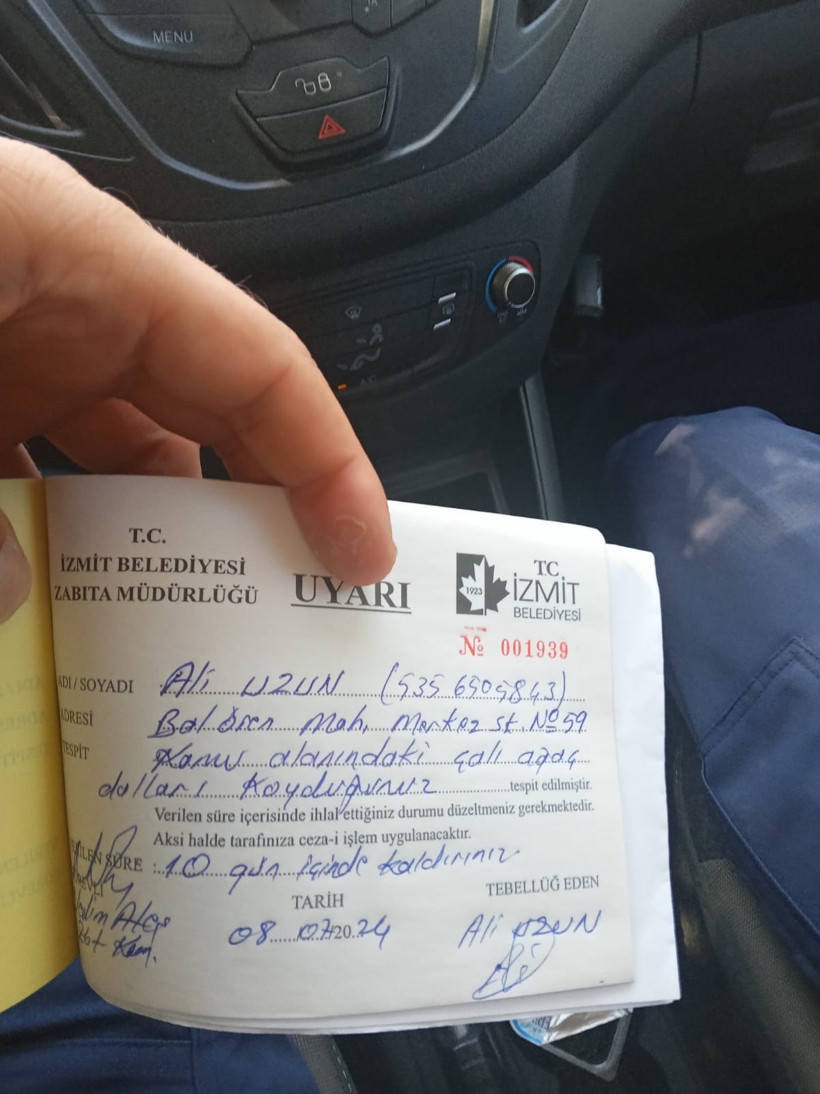 MENU
T.C.
İZMİT BELEDİYESİ
ZABITA MÜDÜRLÜĞÜ
UYARI
1923
TC
İZMİT
BELEDİYESİ
№ 001939
ADI / SOYADI Ali UZUN (535 6505843)
ADRESİ Balören Mah, Merkez st. No 59
TESPİT Kamu alanındaki çalı ağaç
dalları Koyduğunuz tespit edilmiştir.
Verilen süre içerisinde ihlal ettiğiniz durumu düzeltmeniz gerekmektedir.
Aksi halde tarafınıza ceza-i işlem uygulanacaktır.
SÜRE : 10 gün içinde kaldırınız
TARİH
TEBELLÜĞ EDEN
08.07.2024
Ali UZUN